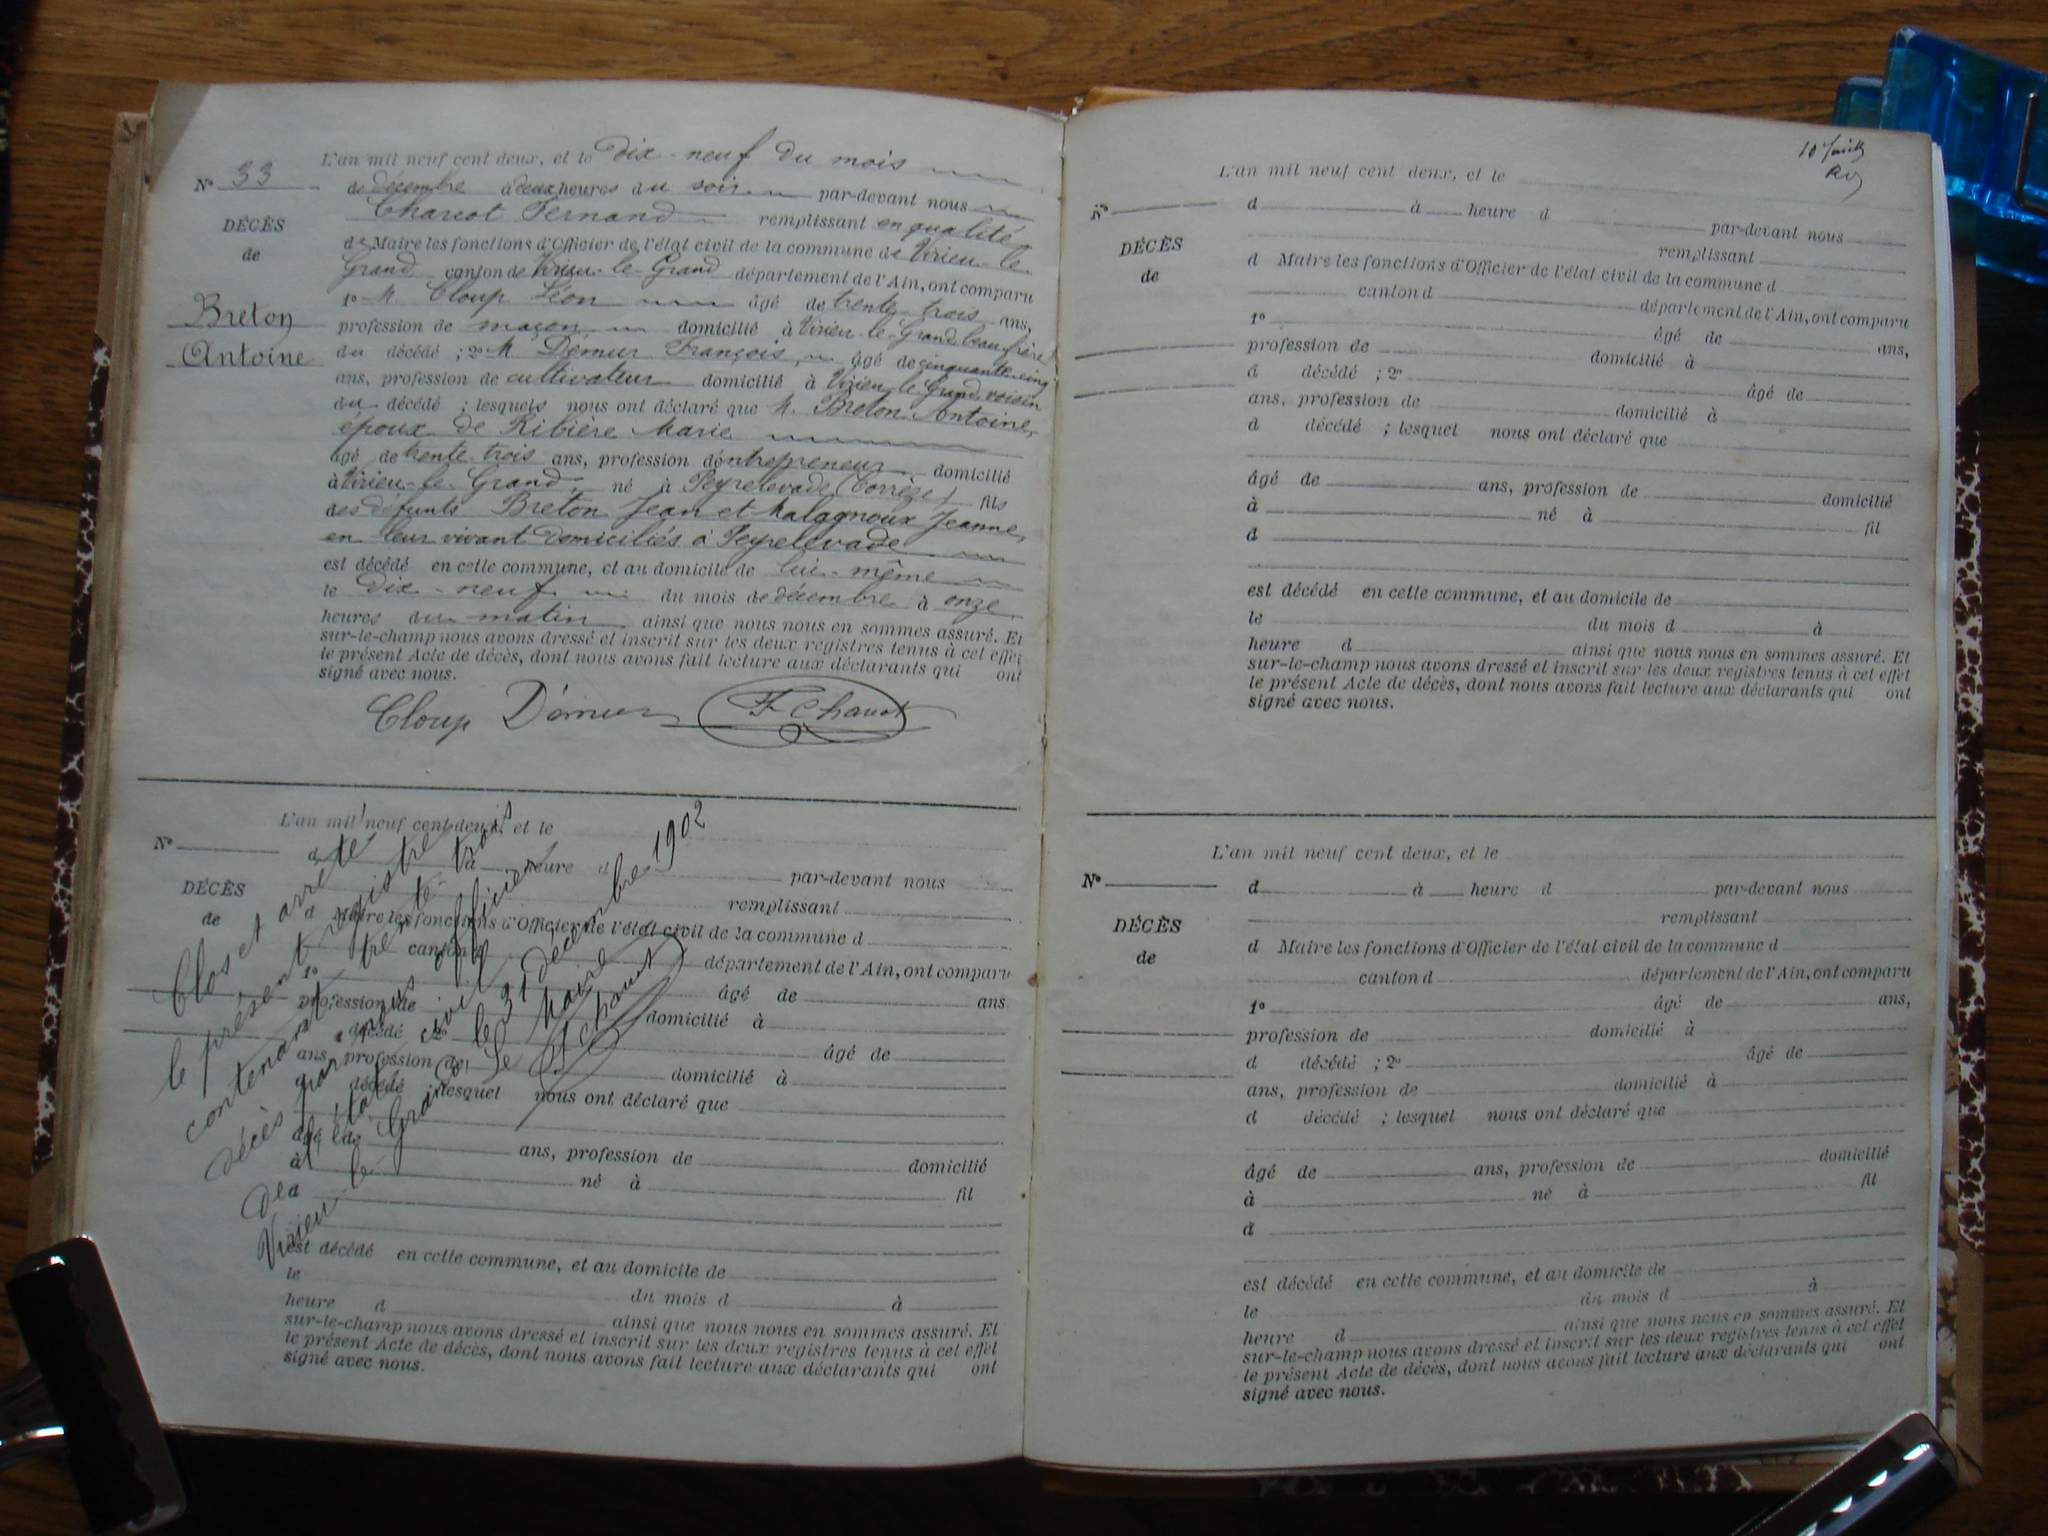 L'an mil neuf cent deux, et le Dix-neuf du mois
N° 33
de décembre à deux heures du soir par-devant nous
Charcot Fernand remplissant en qualité
DÉCÈS
de
de Maire les fonctions d'Officier de l'état civil de la commune de Virieu-le-
Grand canton de Virieu-le-Grand département de l'Ain, ont comparu
1° M. Cloup Léon âgé de trente-trois ans,
Breton
Antoine
profession de maçon domicilié à Virieu-le-Grand beau-frère
du décédé ; 2° M. Démur François, âgé de cinquante-cinq
ans, profession de cultivateur domicilié à Virieu-le-Grand, voisin
du décédé ; lesquels nous ont déclaré que M. Breton Antoine,
époux de Ribière Marie
âgé de trente-trois ans, profession d'entrepreneur domicilié
à Virieu-le-Grand, né à Peyrelevade (Corrèze) fils
des défunts Breton Jean et Malagnoux Jeanne,
en leur vivant domiciliés à Peyrelevade
est décédé en cette commune, et au domicile de lui-même
le Dix-neuf du mois de décembre à onze
heures du matin ainsi que nous nous en sommes assuré. Et
sur-le-champ nous avons dressé et inscrit sur les deux registres tenus à cet effet
le présent Acte de décès, dont nous avons fait lecture aux déclarants qui ont
signé avec nous.
Cloup Démur
L'an mil neuf cent deux, et le
N°
d à heure d par-devant nous
DÉCÈS
de
remplissant
d Maire les fonctions d'Officier de l'état civil de la commune d
canton d département de l'Ain, ont comparu
1° âgé de ans,
profession de domicilié à
d décédé ; 2° âgé de
ans, profession de domicilié à
d décédé ; lesquel nous ont déclaré que
âgé de ans, profession de domicilié
à né à fil
d
est décédé en cette commune, et au domicile de
le du mois d à
heure d ainsi que nous nous en sommes assuré. Et
sur-le-champ nous avons dressé et inscrit sur les deux registres tenus à cet effet
le présent Acte de décès, dont nous avons fait lecture aux déclarants qui ont
signé avec nous.
Clos et arrêté
le présent registre
contenant trente-trois
décès par nous officier
de l'état civil
de Virieu-le-Grand, le 31 décembre 1902
Le Maire
L'an mil neuf cent deux, et le
N°
d à heure d par-devant nous
DÉCÈS
de
remplissant
d Maire les fonctions d'Officier de l'état civil de la commune d
canton d département de l'Ain, ont comparu
1° âgé de ans,
profession de domicilié à
d décédé ; 2° âgé de
ans, profession de domicilié à
d décédé ; lesquel nous ont déclaré que
âgé de ans, profession de domicilié
à né à fil
d
est décédé en cette commune, et au domicile de
le du mois d à
heure d ainsi que nous nous en sommes assuré. Et
sur-le-champ nous avons dressé et inscrit sur les deux registres tenus à cet effet
le présent Acte de décès, dont nous avons fait lecture aux déclarants qui ont
signé avec nous.
L'an mil neuf cent deux, et le
N°
d à heure d par-devant nous
DÉCÈS
de
remplissant
d Maire les fonctions d'Officier de l'état civil de la commune d
canton d département de l'Ain, ont comparu
1° âgé de ans,
profession de domicilié à
d décédé ; 2° âgé de
ans, profession de domicilié à
d décédé ; lesquel nous ont déclaré que
âgé de ans, profession de domicilié
à né à fil
d
est décédé en cette commune, et au domicile de
le du mois d à
heure d ainsi que nous nous en sommes assuré. Et
sur-le-champ nous avons dressé et inscrit sur les deux registres tenus à cet effet
le présent Acte de décès, dont nous avons fait lecture aux déclarants qui ont
signé avec nous.